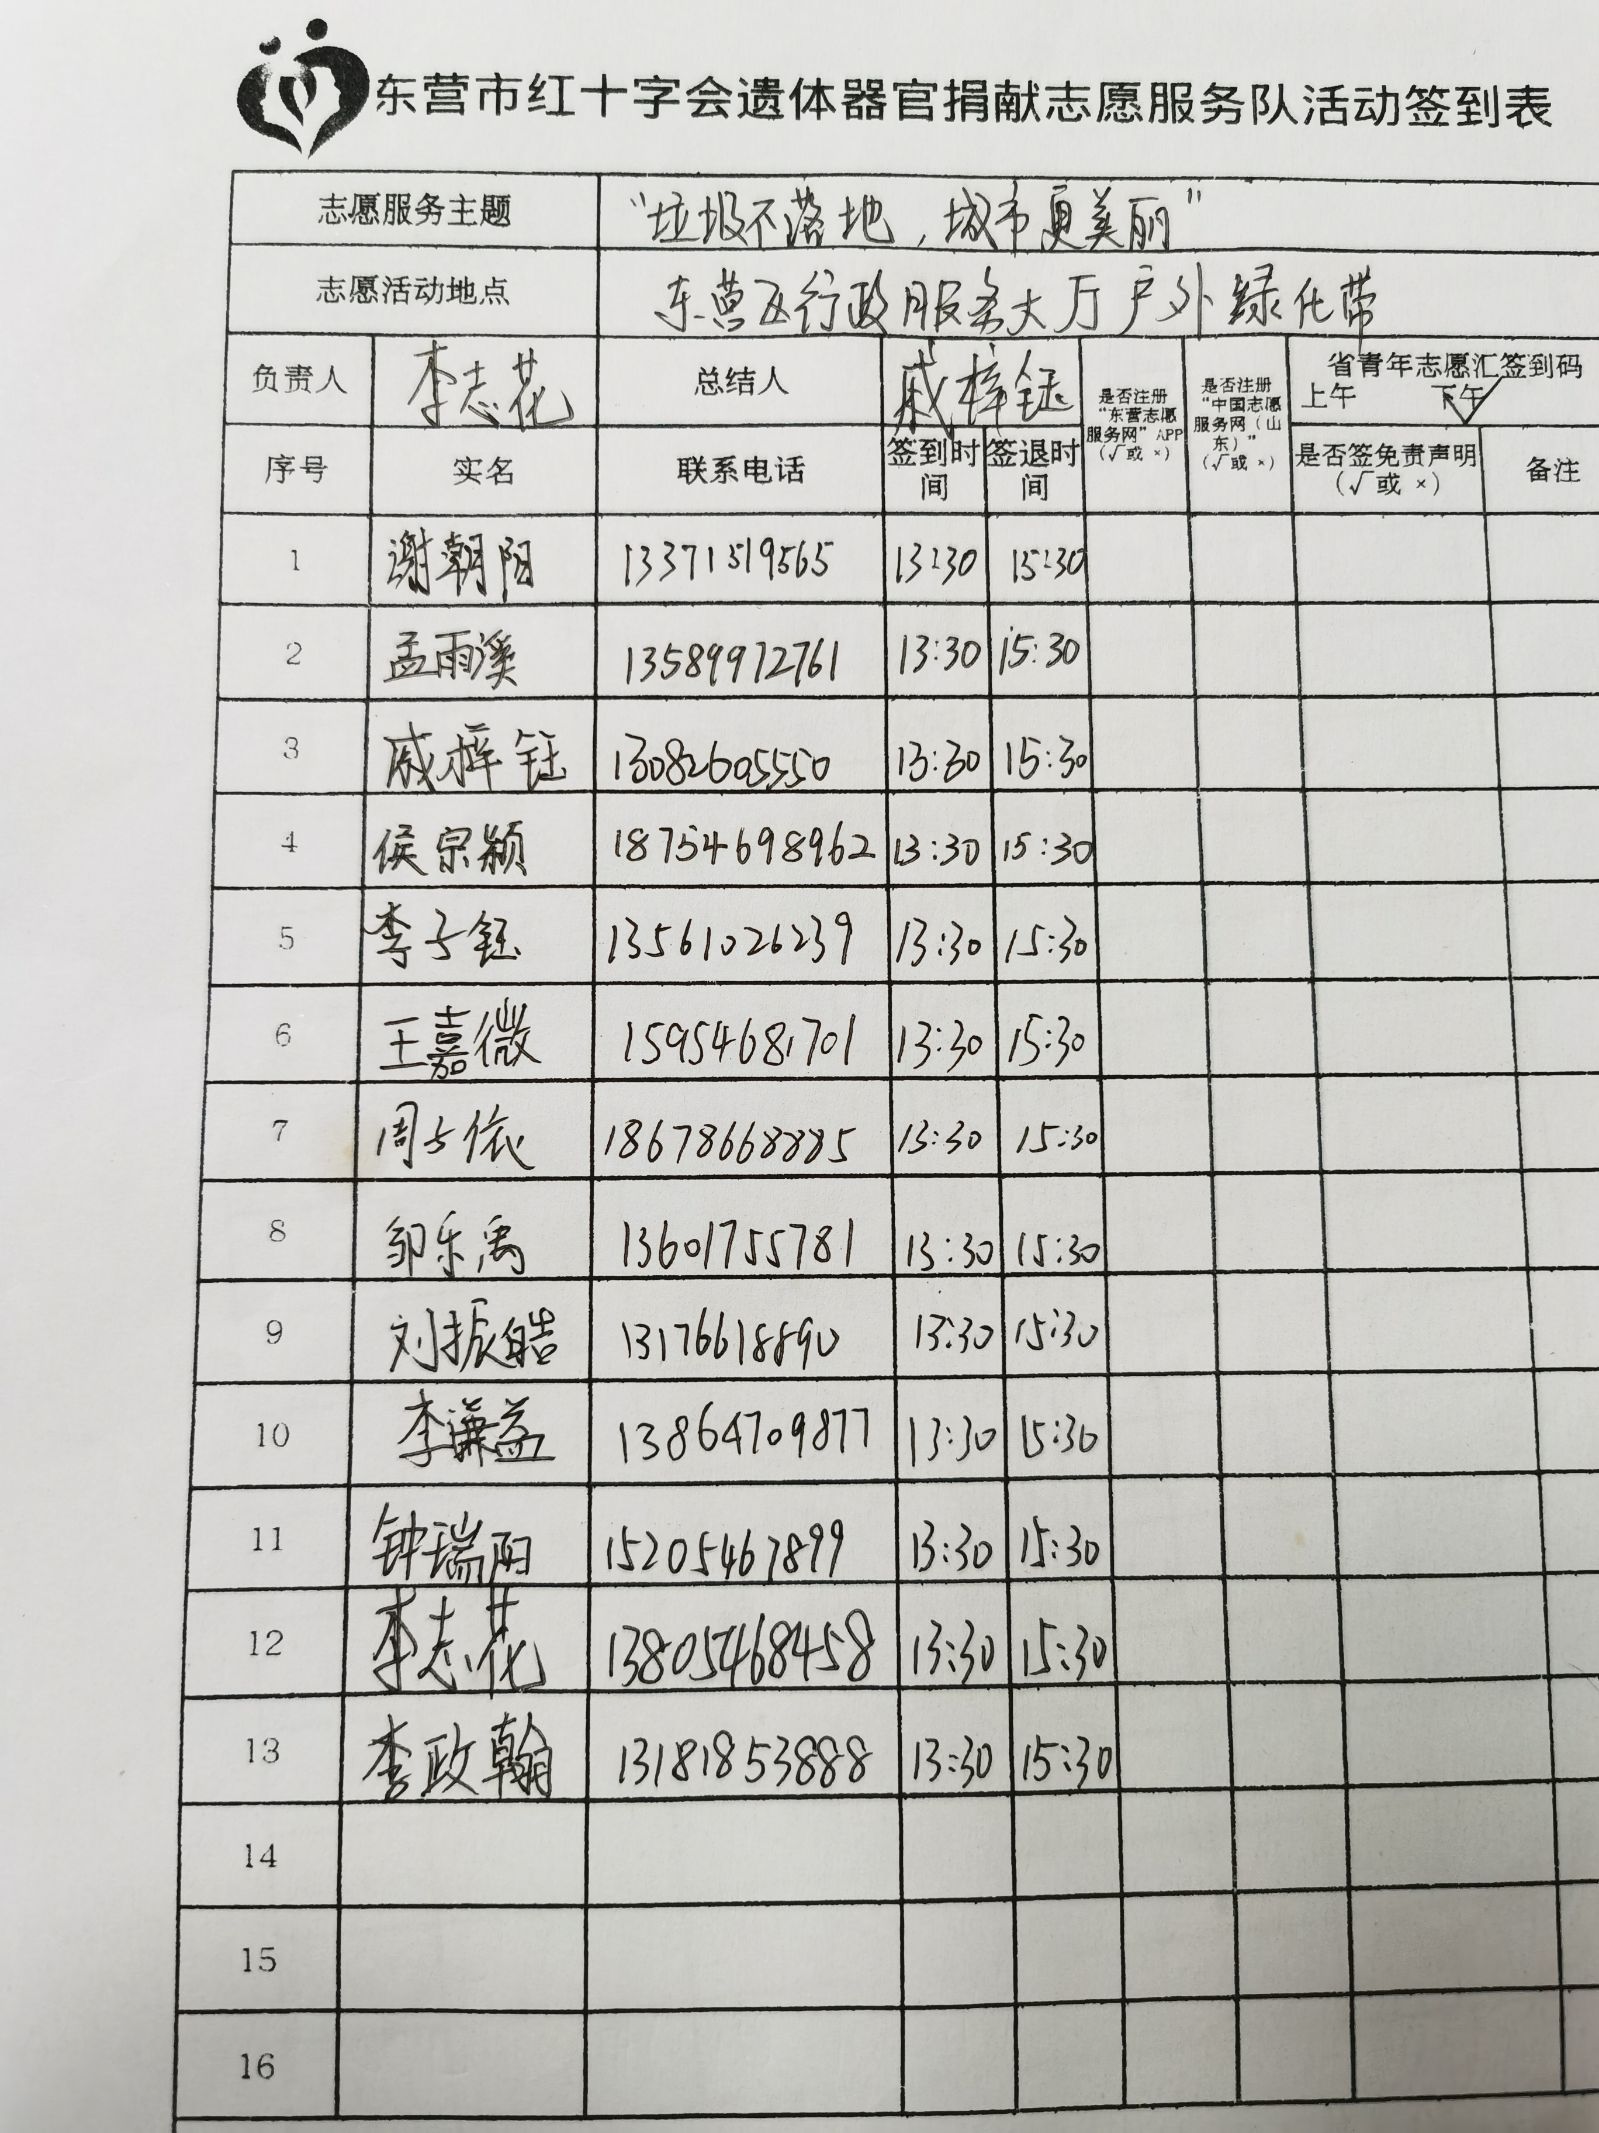 东营市红十字会遗体器官捐献志愿服务队活动签到表
志愿服务主题 “垃圾不落地，城市更美丽”
志愿活动地点 东营区行政服务大厅户外绿化带
负责人 李志花 总结人 戚梓钰 是否注册“东营志愿服务网”APP（√或 ×） 是否注册“中国志愿服务网（山东）”（√或 ×） 省青年志愿汇签到码 上午 下午√
序号 实名 联系电话 签到时间 签退时间 是否签免责声明（√或 ×） 备注
1 谢朝阳 13371519565 13:30 15:30
2 孟雨溪 13589972761 13:30 15:30
3 戚梓钰 13082605550 13:30 15:30
4 侯宗颖 18754698962 13:30 15:30
5 李子钰 13561026239 13:30 15:30
6 王嘉微 15954681701 13:30 15:30
7 周子依 18678668885 13:30 15:30
8 邹乐禹 13601755781 13:30 15:30
9 刘振皓 13176618890 13:30 15:30
10 李谦益 13864709877 13:30 15:30
11 钟瑞阳 15205467899 13:30 15:30
12 李志花 13805468458 13:30 15:30
13 李政翰 13181853888 13:30 15:30
14
15
16